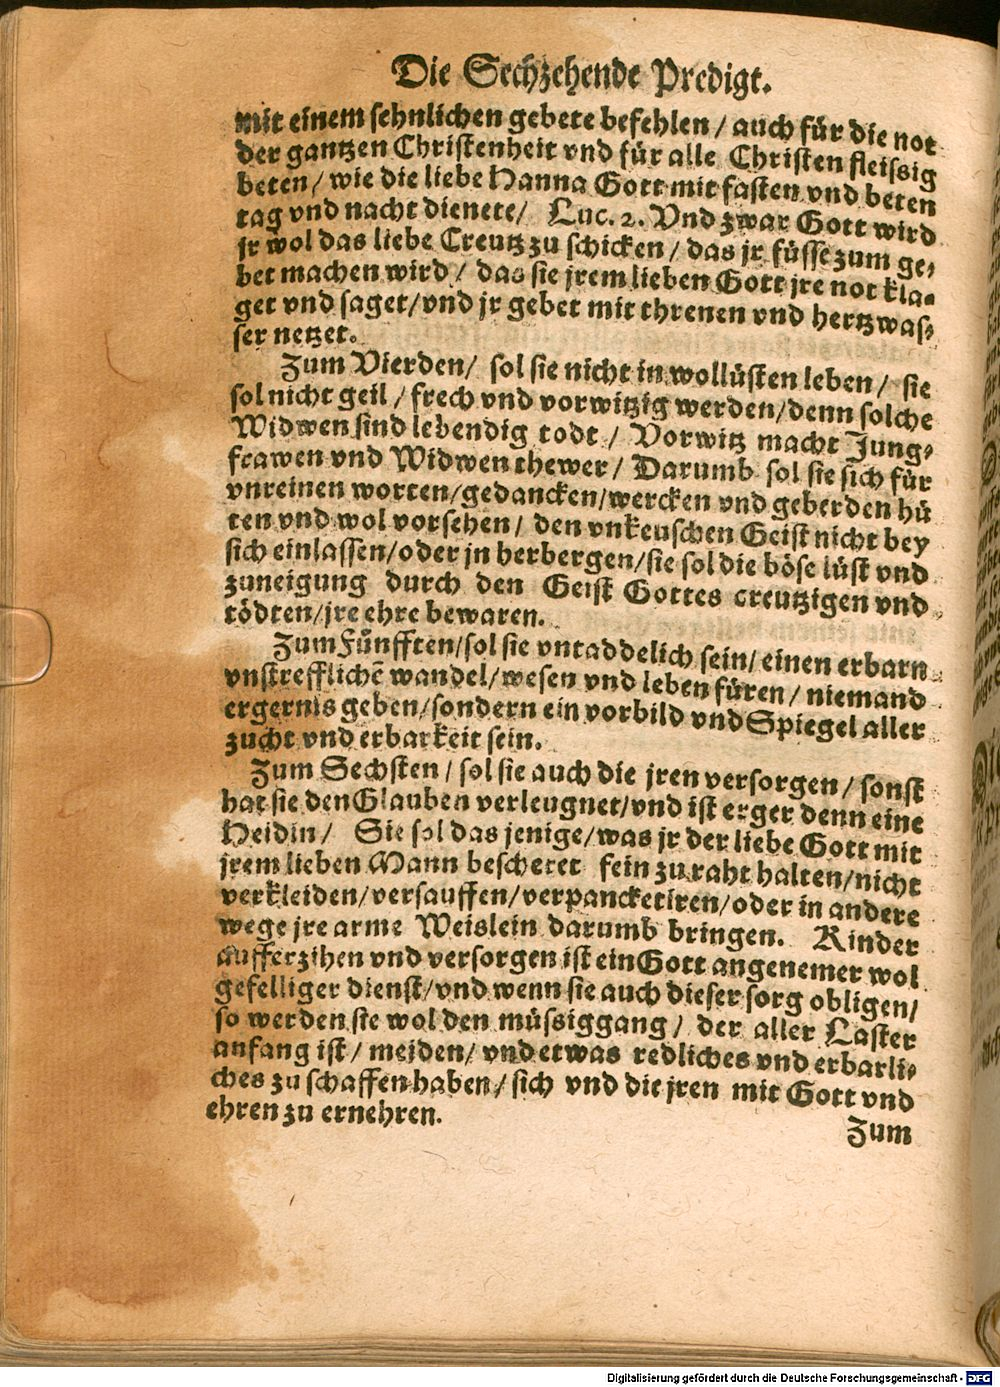 Die Sechzehende Predigt.
mit einem sehnlichen gebete befehlen / auch für die not
der gantzen Christenheit vnd für alle Christen fleissig
beten / wie die liebe Hanna Gott mit fasten vnd beten
tag vnd nacht dienete / Luc. 2. Vnd zwar Gott wird
jr wol das liebe Creutz zu schicken / das jr füsse zum ge-
bet machen wird / das sie jrem lieben Gott jre not kla-
get vnd saget / vnd jr gebet mit threnen vnd hertzwas-
ser netzet.
Zum Vierden / sol sie nicht in wollüsten leben / sie
sol nicht geil / frech vnd vorwitzig werden / denn solche
Widwen sind lebendig todt / Vorwitz macht Jung-
frawen vnd Widwen thewer / Darumb sol sie sich für
vnreinen worten / gedancken / wercken vnd geberden hü
ten vnd wol vorsehen / den vnkeuschen Geist nicht bey
sich einlassen / oder jn herbergen / sie sol die böse lüst vnd
zuneigung durch den Geist Gottes creutzigen vnd
tödten / jre ehre bewaren.
Zum Fünfften / sol sie vntaddelich sein / einen erbarn
vnstrefflichẽ wandel / wesen vnd leben füren / niemand
ergernis geben / sondern ein vorbild vnd Spiegel aller
zucht vnd erbarkeit sein.
Zum Sechsten / sol sie auch die jren versorgen / sonst
hat sie den Glauben verleugnet / vnd ist erger denn eine
Heidin / Sie sol das jenige / was jr der liebe Gott mit
jrem lieben Mann bescheret fein zu raht halten / nicht
verkleiden / versauffen / verpancketiren / oder in andere
wege jre arme Weislein darumb bringen. Kinder
aufferzihen vnd versorgen ist ein Gott angenemer wol
gefelliger dienst / vnd wenn sie auch dieser sorg obligen /
so werden sie wol den müssiggang / der aller Laster
anfang ist / meiden / vnd etwas redliches vnd erbarli-
ches zu schaffen haben / sich vnd die jren mit Gott vnd
ehren zu ernehren.
Zum
Digitalisierung gefördert durch die Deutsche Forschungsgemeinschaft - DFG